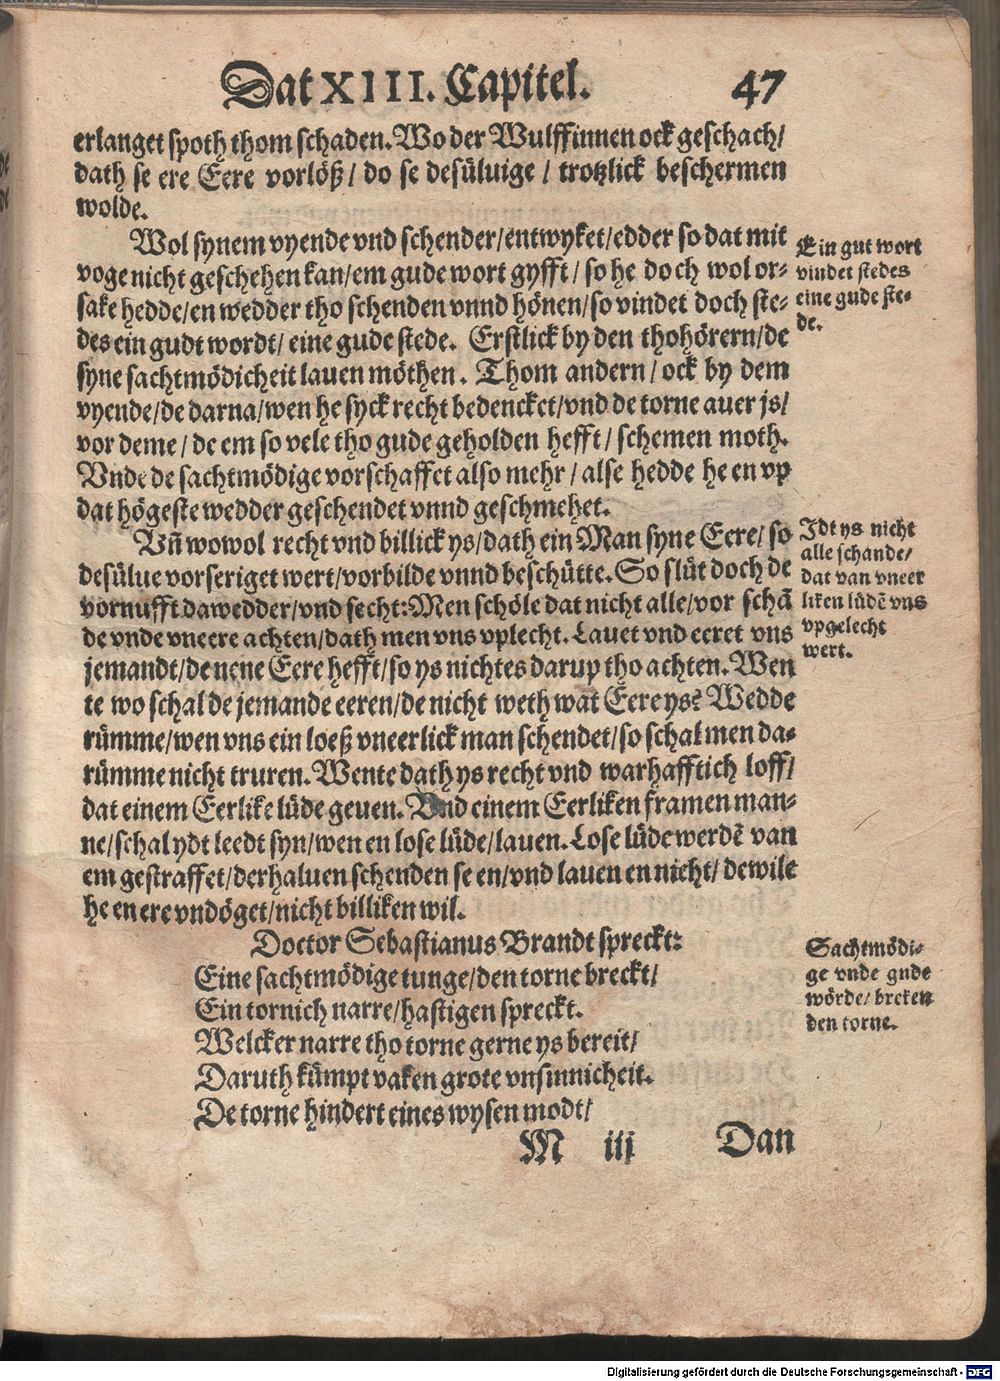 Dat XIII. Capitel. 47
erlanget spoth thom schaden. Wo der Wulffinnen ock geschach/
dath se ere Eere vorlöß/ do se desüluige/ trotzlick beschermen
wolde.
Wol synem vyende vnd schender/entwyket/edder so dat mit
voge nicht geschehen kan/em gude wort gyfft/ so he doch wol or-
sake hedde/en wedder tho schenden vnnd hönen/so vindet doch ste-
des ein gudt wordt/ eine gude stede. Erstlick by den thohörern/de
syne sachtmödicheit lauen möthen. Thom andern/ ock by dem
vyende/de darna/wen he syck recht bedencket/vnd de torne auer js/
vor deme/ de em so vele tho gude geholden hefft/ schemen moth.
Vnde de sachtmödige vorschaffet also mehr/ alse hedde he en vp
dat högeste wedder geschendet vnnd geschmehet.
Ein gut wort
vindet stedes
eine gude ste-
de.
Vñ wowol recht vnd billick ys/dath ein Man syne Eere/ so
desülue vorseriget wert/vorbilde vnnd beschütte. So slüt doch de
vornufft dawedder/vnd secht: Men schöle dat nicht alle/vor schā
de vnde vneere achten/dath men vns vplecht. Lauet vnd eeret vns
jemandt/de nene Eere hefft/so ys nichtes darup tho achten. Wen
te wo schal de jemande eeren/de nicht weth wat Eere ys? Wedde
rümme/wen vns ein loeß vneerlick man schendet/so schal men da-
rümme nicht truren. Wente dath ys recht vnd warhafftich loff/
dat einem Eerlike lüde geuen. Vnd einem Eerliken framen man-
ne/schal ydt leedt syn/wen en lose lüde/lauen. Lose lüde werdē van
em gestraffet/derhaluen schenden se en/vnd lauen en nicht/ dewile
he en ere vndöget/nicht billiken wil.
Jdt ys nicht
alle schande/
dat van vneer
liken lüdē vns
vpgelecht
wert.
Doctor Sebastianus Brandt spreckt:
Eine sachtmödige tunge/den torne breckt/
Ein tornich narre/hastigen spreckt.
Welcker narre tho torne gerne ys bereit/
Daruth kümpt vaken grote vnsinnicheit.
De torne hindert eines wysen modt/
Sachtmödi-
ge vnde gude
wörde/ breken
den torne.
M iij Dan
Digitalisierung gefördert durch die Deutsche Forschungsgemeinschaft - DFG